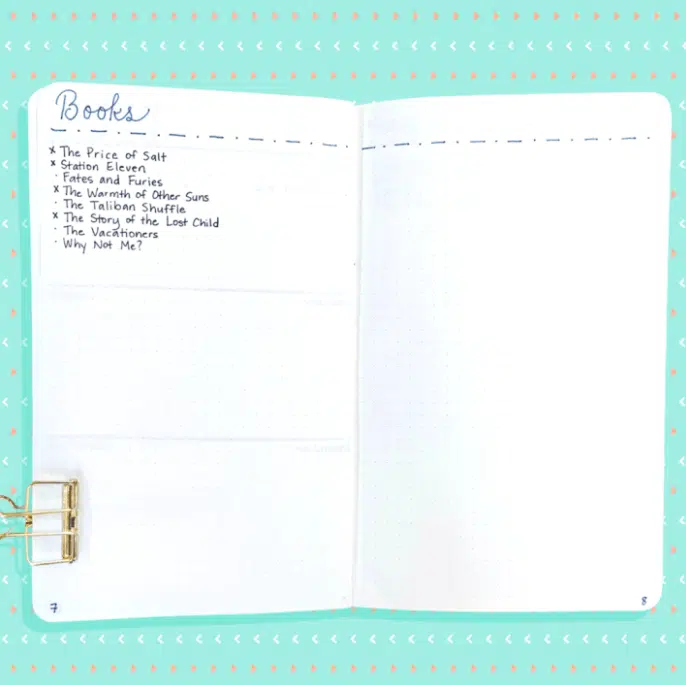 Books
x The Price of Salt
x Station Eleven
· Fates and Furies
x The Warmth of Other Suns
· The Taliban Shuffle
x The Story of the Lost Child
· The Vacationers
· Why Not Me?
7
8